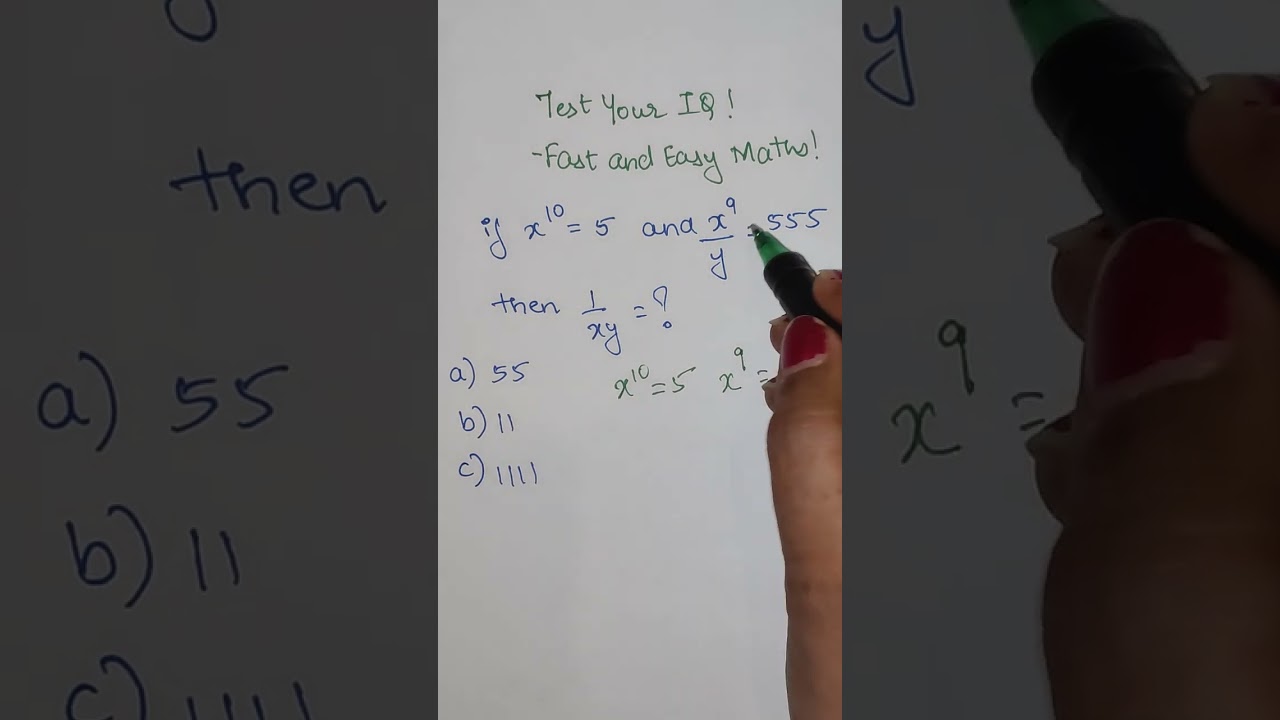 Test Your IQ!
-Fast and Easy Maths!
if x¹⁰ = 5 and x⁹/y = 555
then 1/xy = ?
a) 55
x¹⁰ = 5 x⁹ =
b) 11
c) 1111